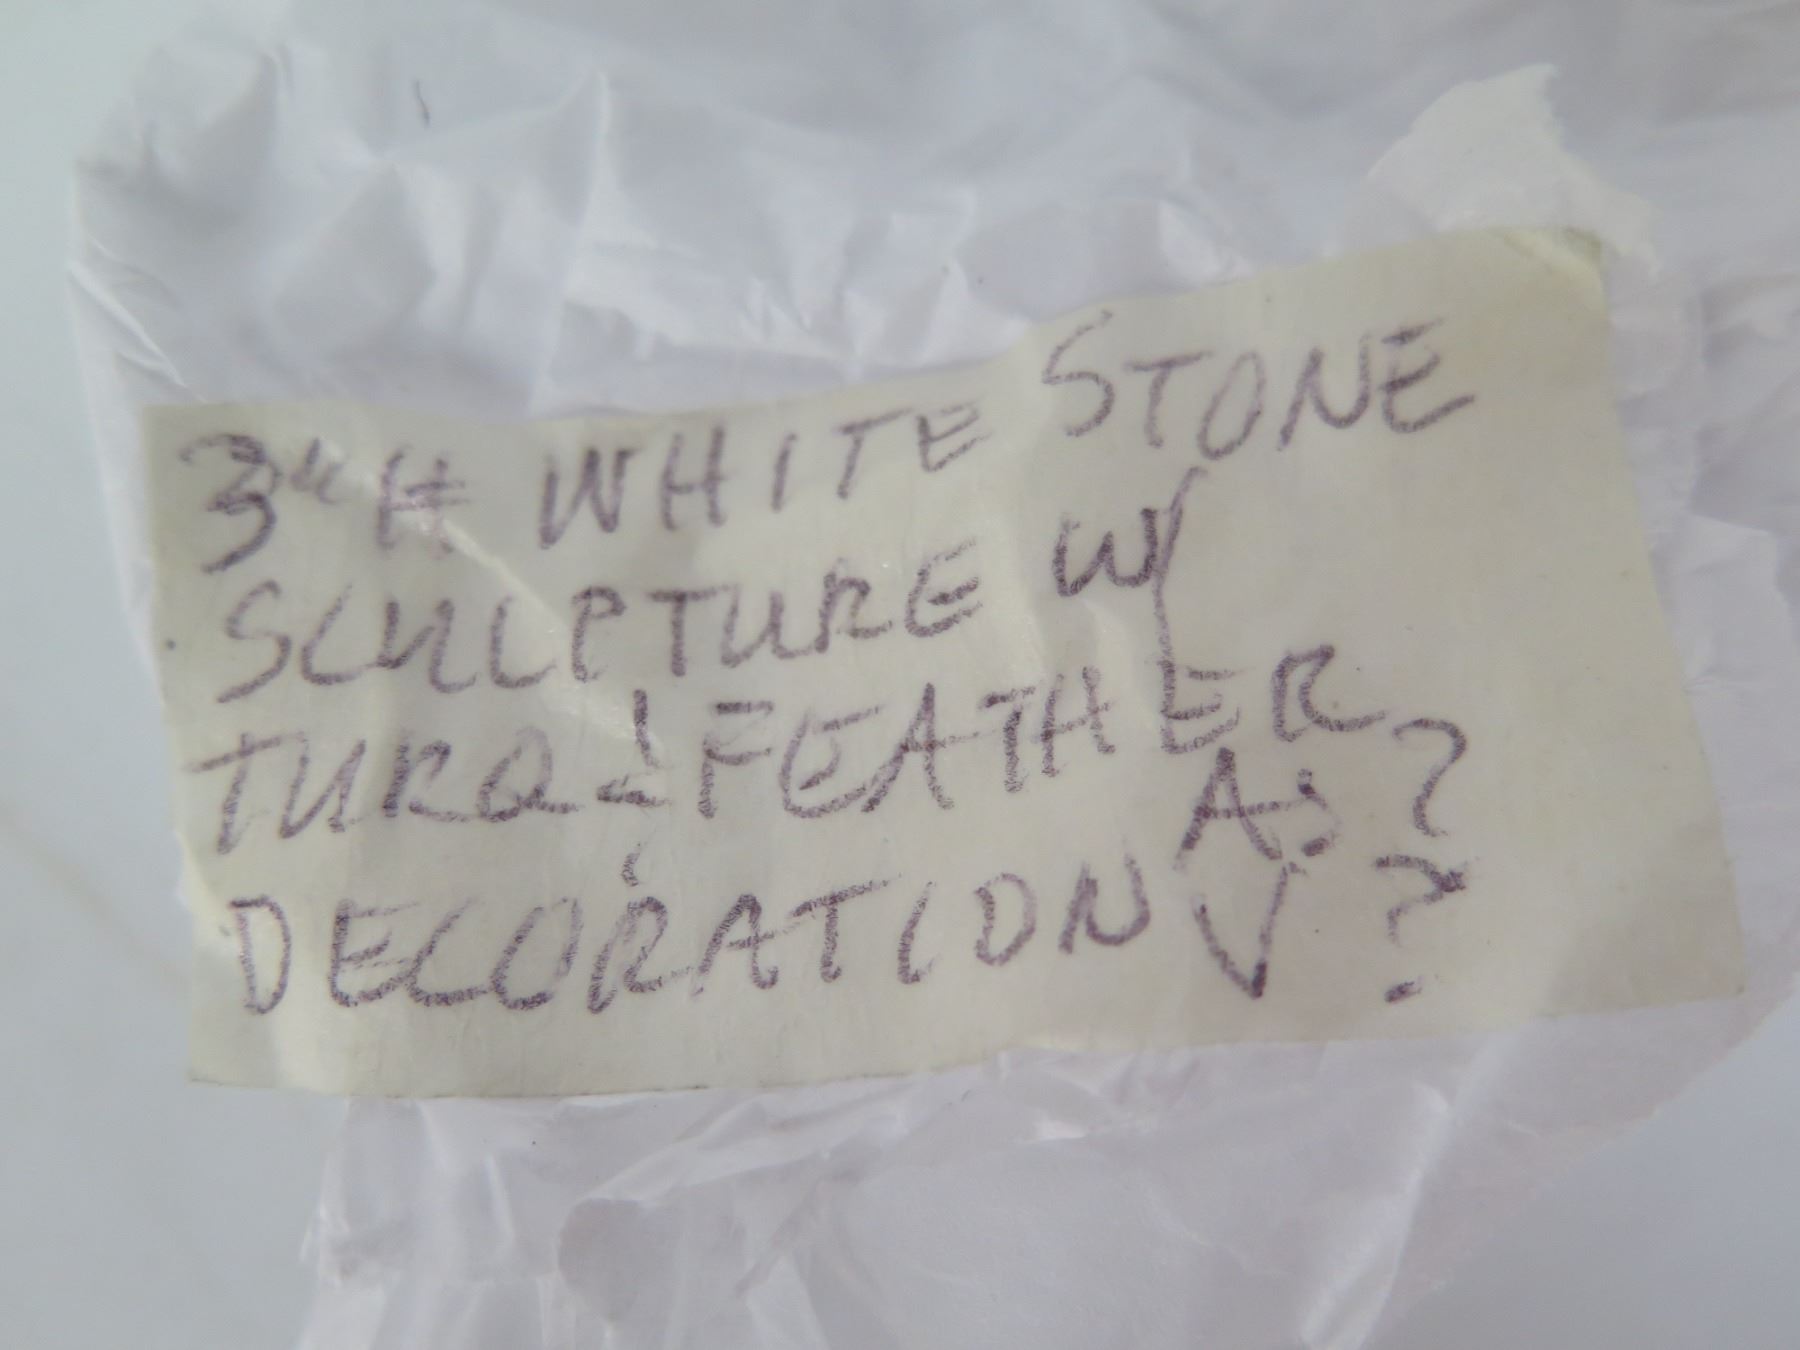 3"H WHITE STONE
SCULPTURE W/
TURQ & FEATHER
DECORATION
A: ?
V ?